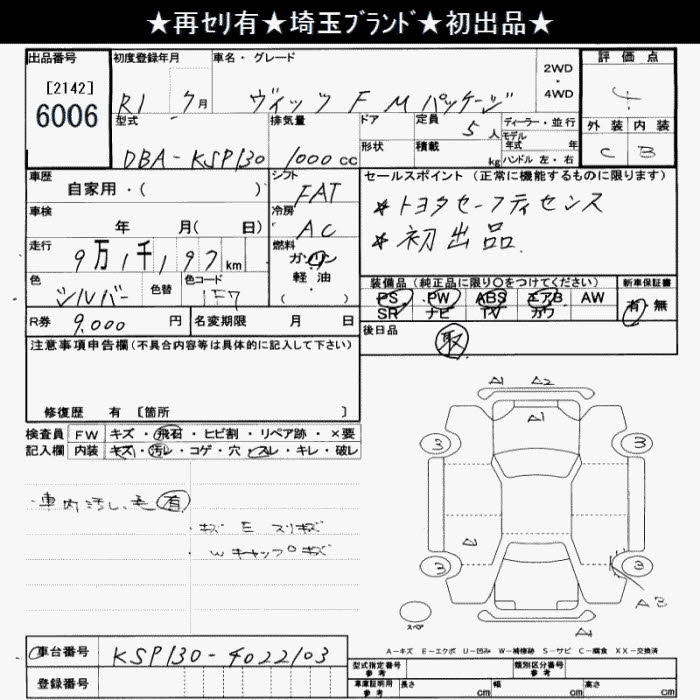 ★再セリ有★埼玉ﾌﾞﾗﾝﾄﾞ★初出品★
出品番号
[2142]
6006
初度登録年月
R1 7月
車名・グレード
ヴィッツ F Mパッケージ
2WD
・
4WD
評価点
型式
DBA-KSP130
排気量
1000 cc
ドア
形状
定員
5人
積載
kg
ディーラー・並行
モデル
年式 年
ハンドル 左・右
外装 内装
C B
車歴
自家用・( )
シフト
FAT
セールスポイント(正常に機能するものに限ります)
*トヨタセーフティセンス
*初出品
車検
年 月( 日)
冷房
AC
走行
9万1千197km
燃料
ガソリン
・
軽油
( )
色
シルバー
色替
色コード
1F7
装備品(純正品に限り○をつけてください)
PS PW ABS エアB AW
SR ナビ TV カワ
新車保証書
有・無
R券
9,000円
名変期限 月 日
後日品
取
注意事項申告欄(不具合内容等は具体的に記入して下さい)
修復歴 有 [箇所 ]
検査員
記入欄
FW キズ・飛石・ヒビ割・リペア跡・×要
内装 キズ・汚レ・コゲ・穴・スレ・キレ・破レ
・車内汚レ 有
・キズ E スリキズ
・Wキャップキズ
A1 A2
A1
3 3
3 3
A
A3
スペア
A-キズ E-エクボ U-凹み W-補修跡 S-サビ C-腐食 XX-交換済
車台番号
KSP130-4022103
登録番号
型式指定番号
参考
類別区分番号
参考
車庫証明用
参考
長さ cm 幅 cm 高さ cm